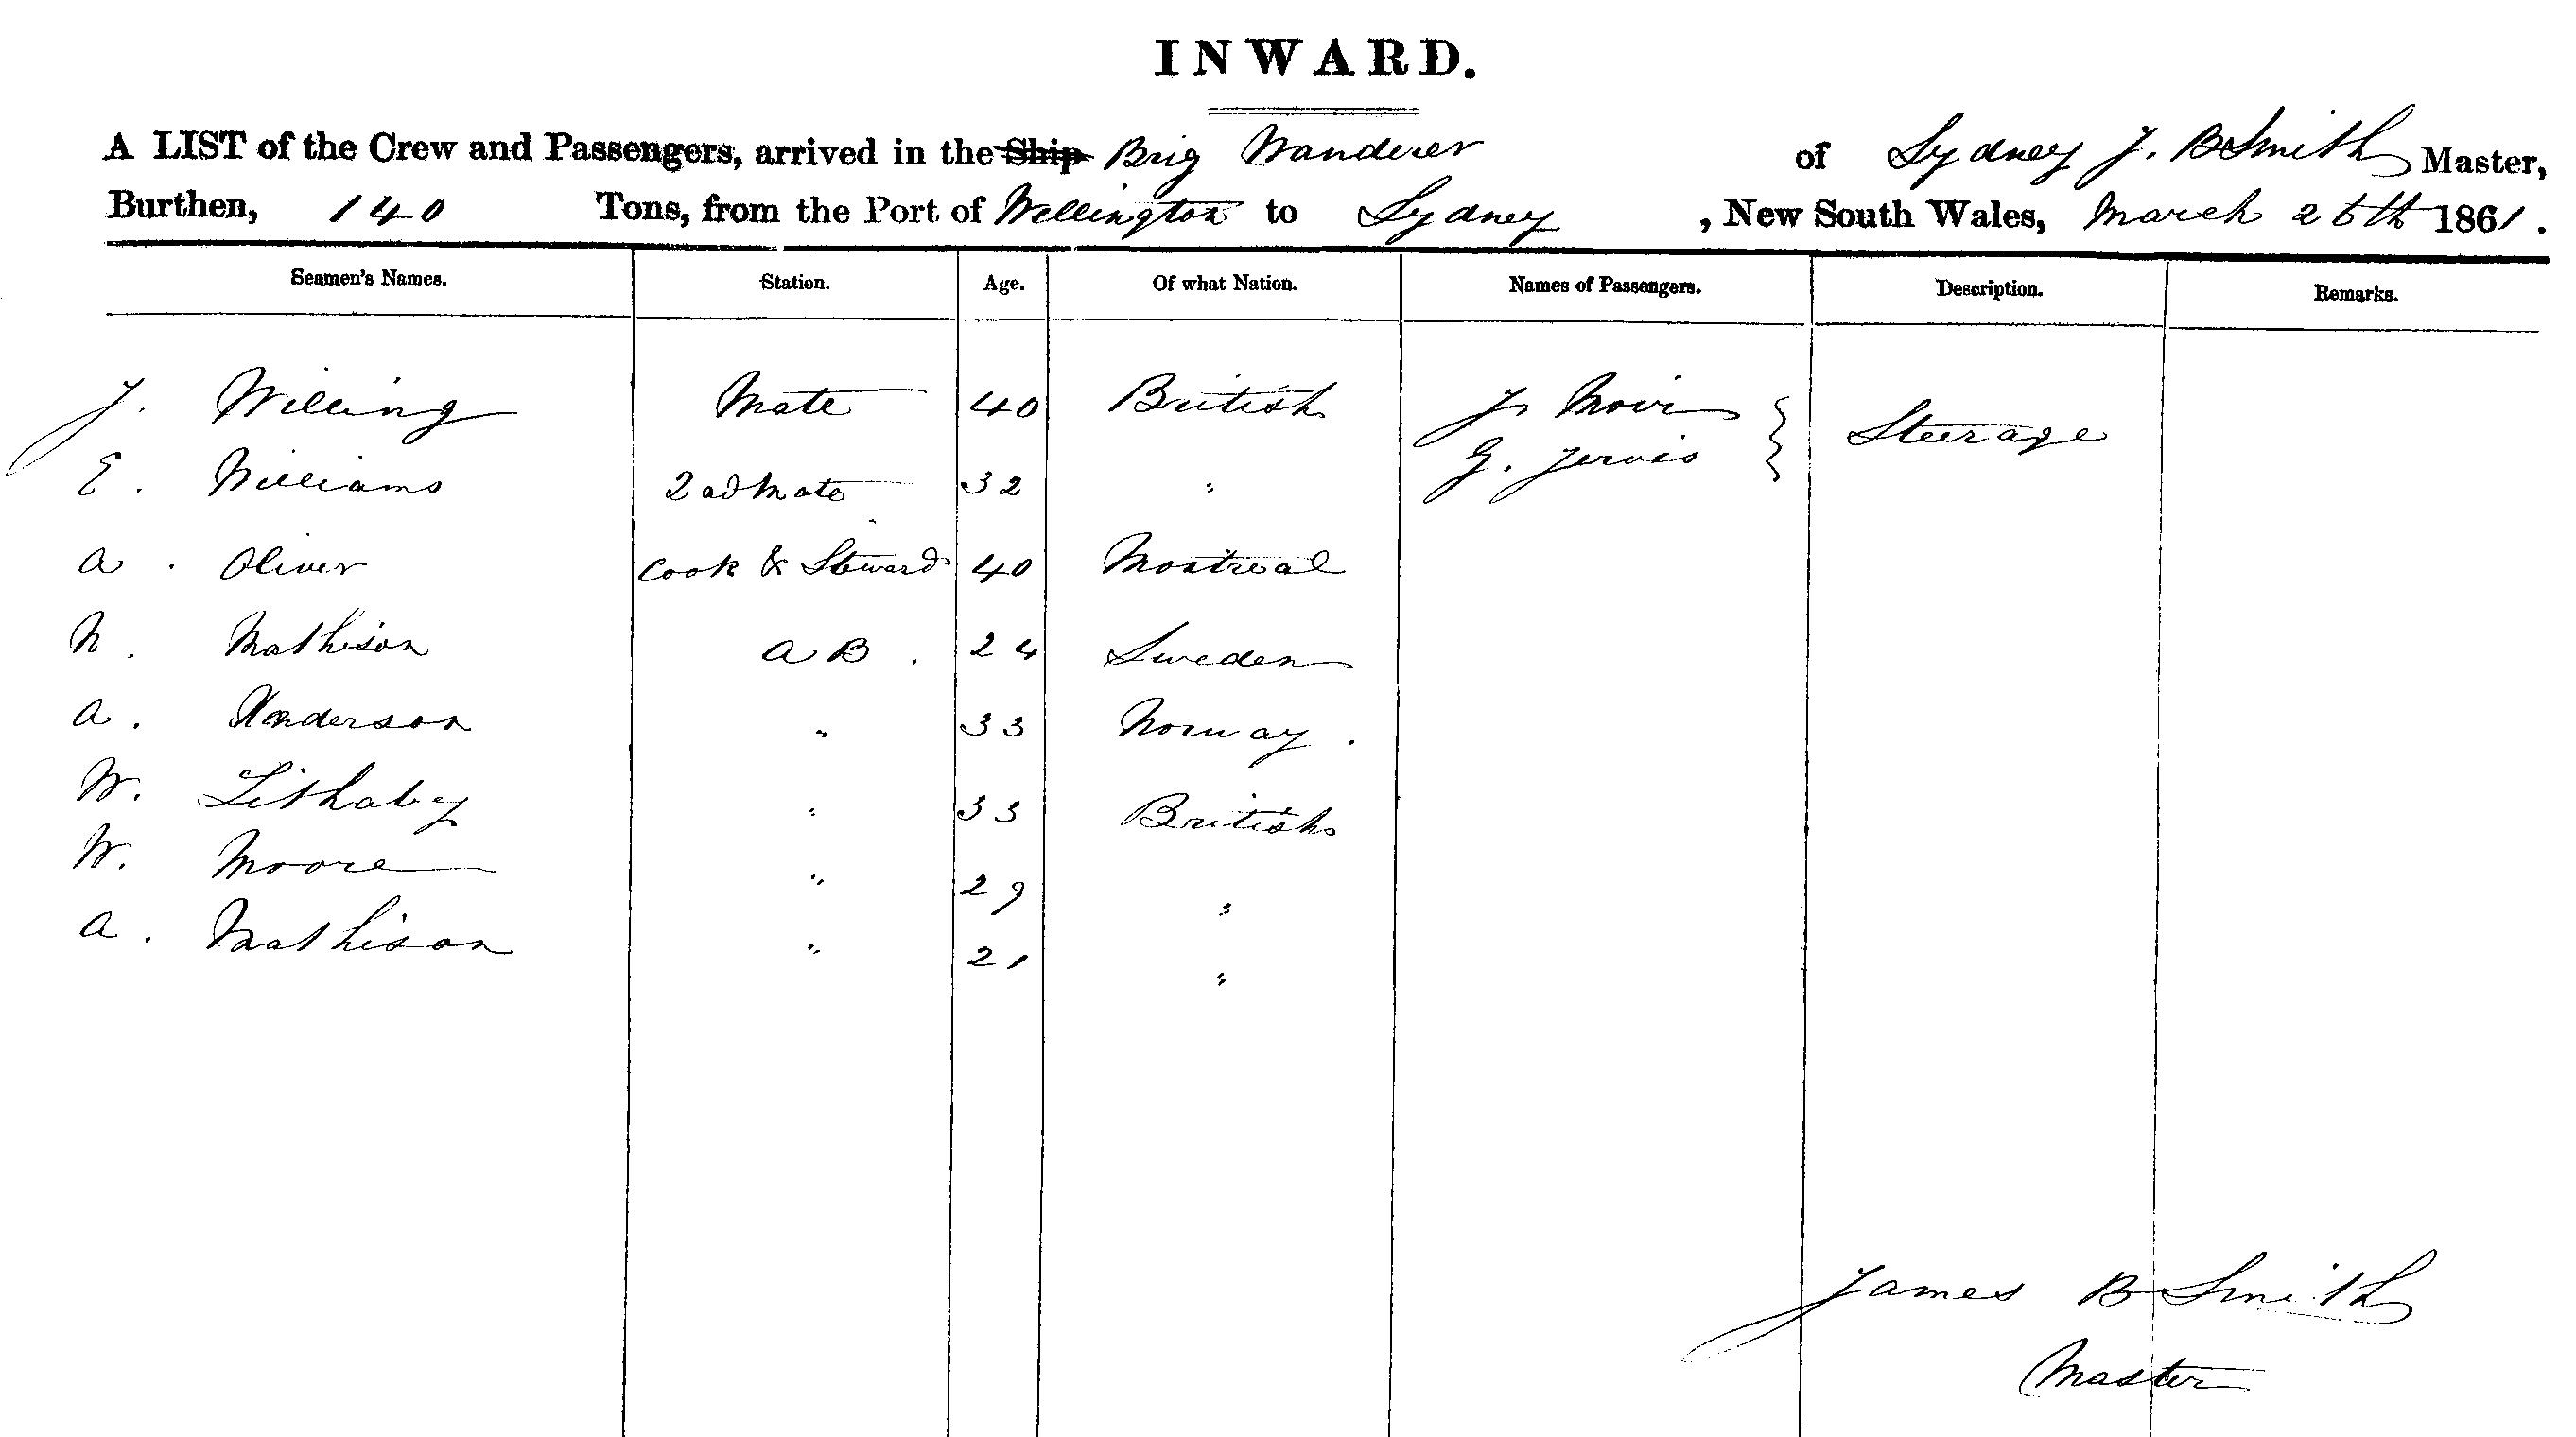 INWARD.
A LIST of the Crew and Passengers, arrived in the Ship Brig Wanderer of Sydney J. B Smith Master,
Burthen, 140 Tons, from the Port of Wellington to Sydney, New South Wales, March 26th 1861.
Seamen's Names. Station. Age. Of what Nation. Names of Passengers. Description. Remarks.
J. Willing Mate 40 British J. } Steerage
E. Williams 2nd Mate 32 " G. Jervis
A. Oliver Cook & Steward 40 Montreal
N. Mathison AB. 24 Sweden
A. Anderson " 33 Norway.
W. Lithaby " 33 British
W. Moore " 29 "
A. Mathison " 21 "
James B Smith
Master